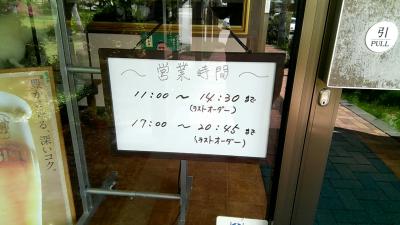 ～営業時間～
11:00 ～ 14:30 まで
(ラストオーダー)
17:00 ～ 20:45 まで
(ラストオーダー)
引
PULL
深いコク。